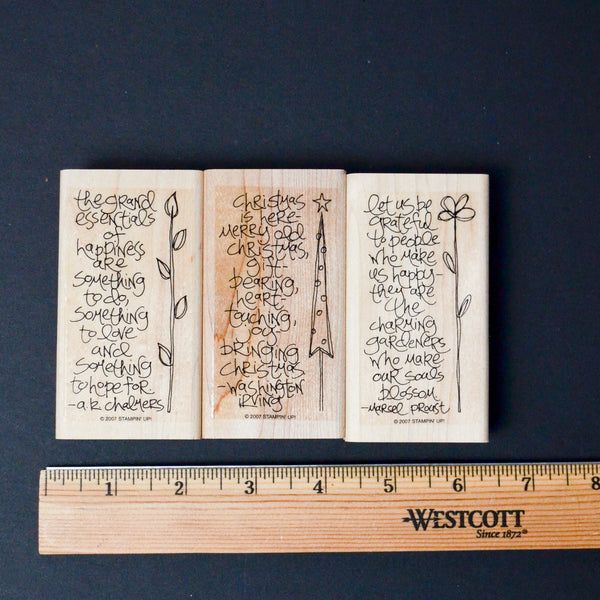 the grand
essentials
of
happiness
are
something
to do,
something
to love
and
something
to hope for.
-a.k. chalmers
© 2007 STAMPIN' UP!
christmas
is here-
merry old
christmas,
gift-
bearing,
heart-
touching,
joy
bringing
christmas
-washington
irving
© 2007 STAMPIN' UP!
let us be
grateful
to people
who make
us happy-
they are
the
charming
gardeners
who make
our souls
blossom.
-marcel proust
© 2007 STAMPIN' UP!
1 2 3 4 5 6 7 8
WESTCOTT
Since 1872